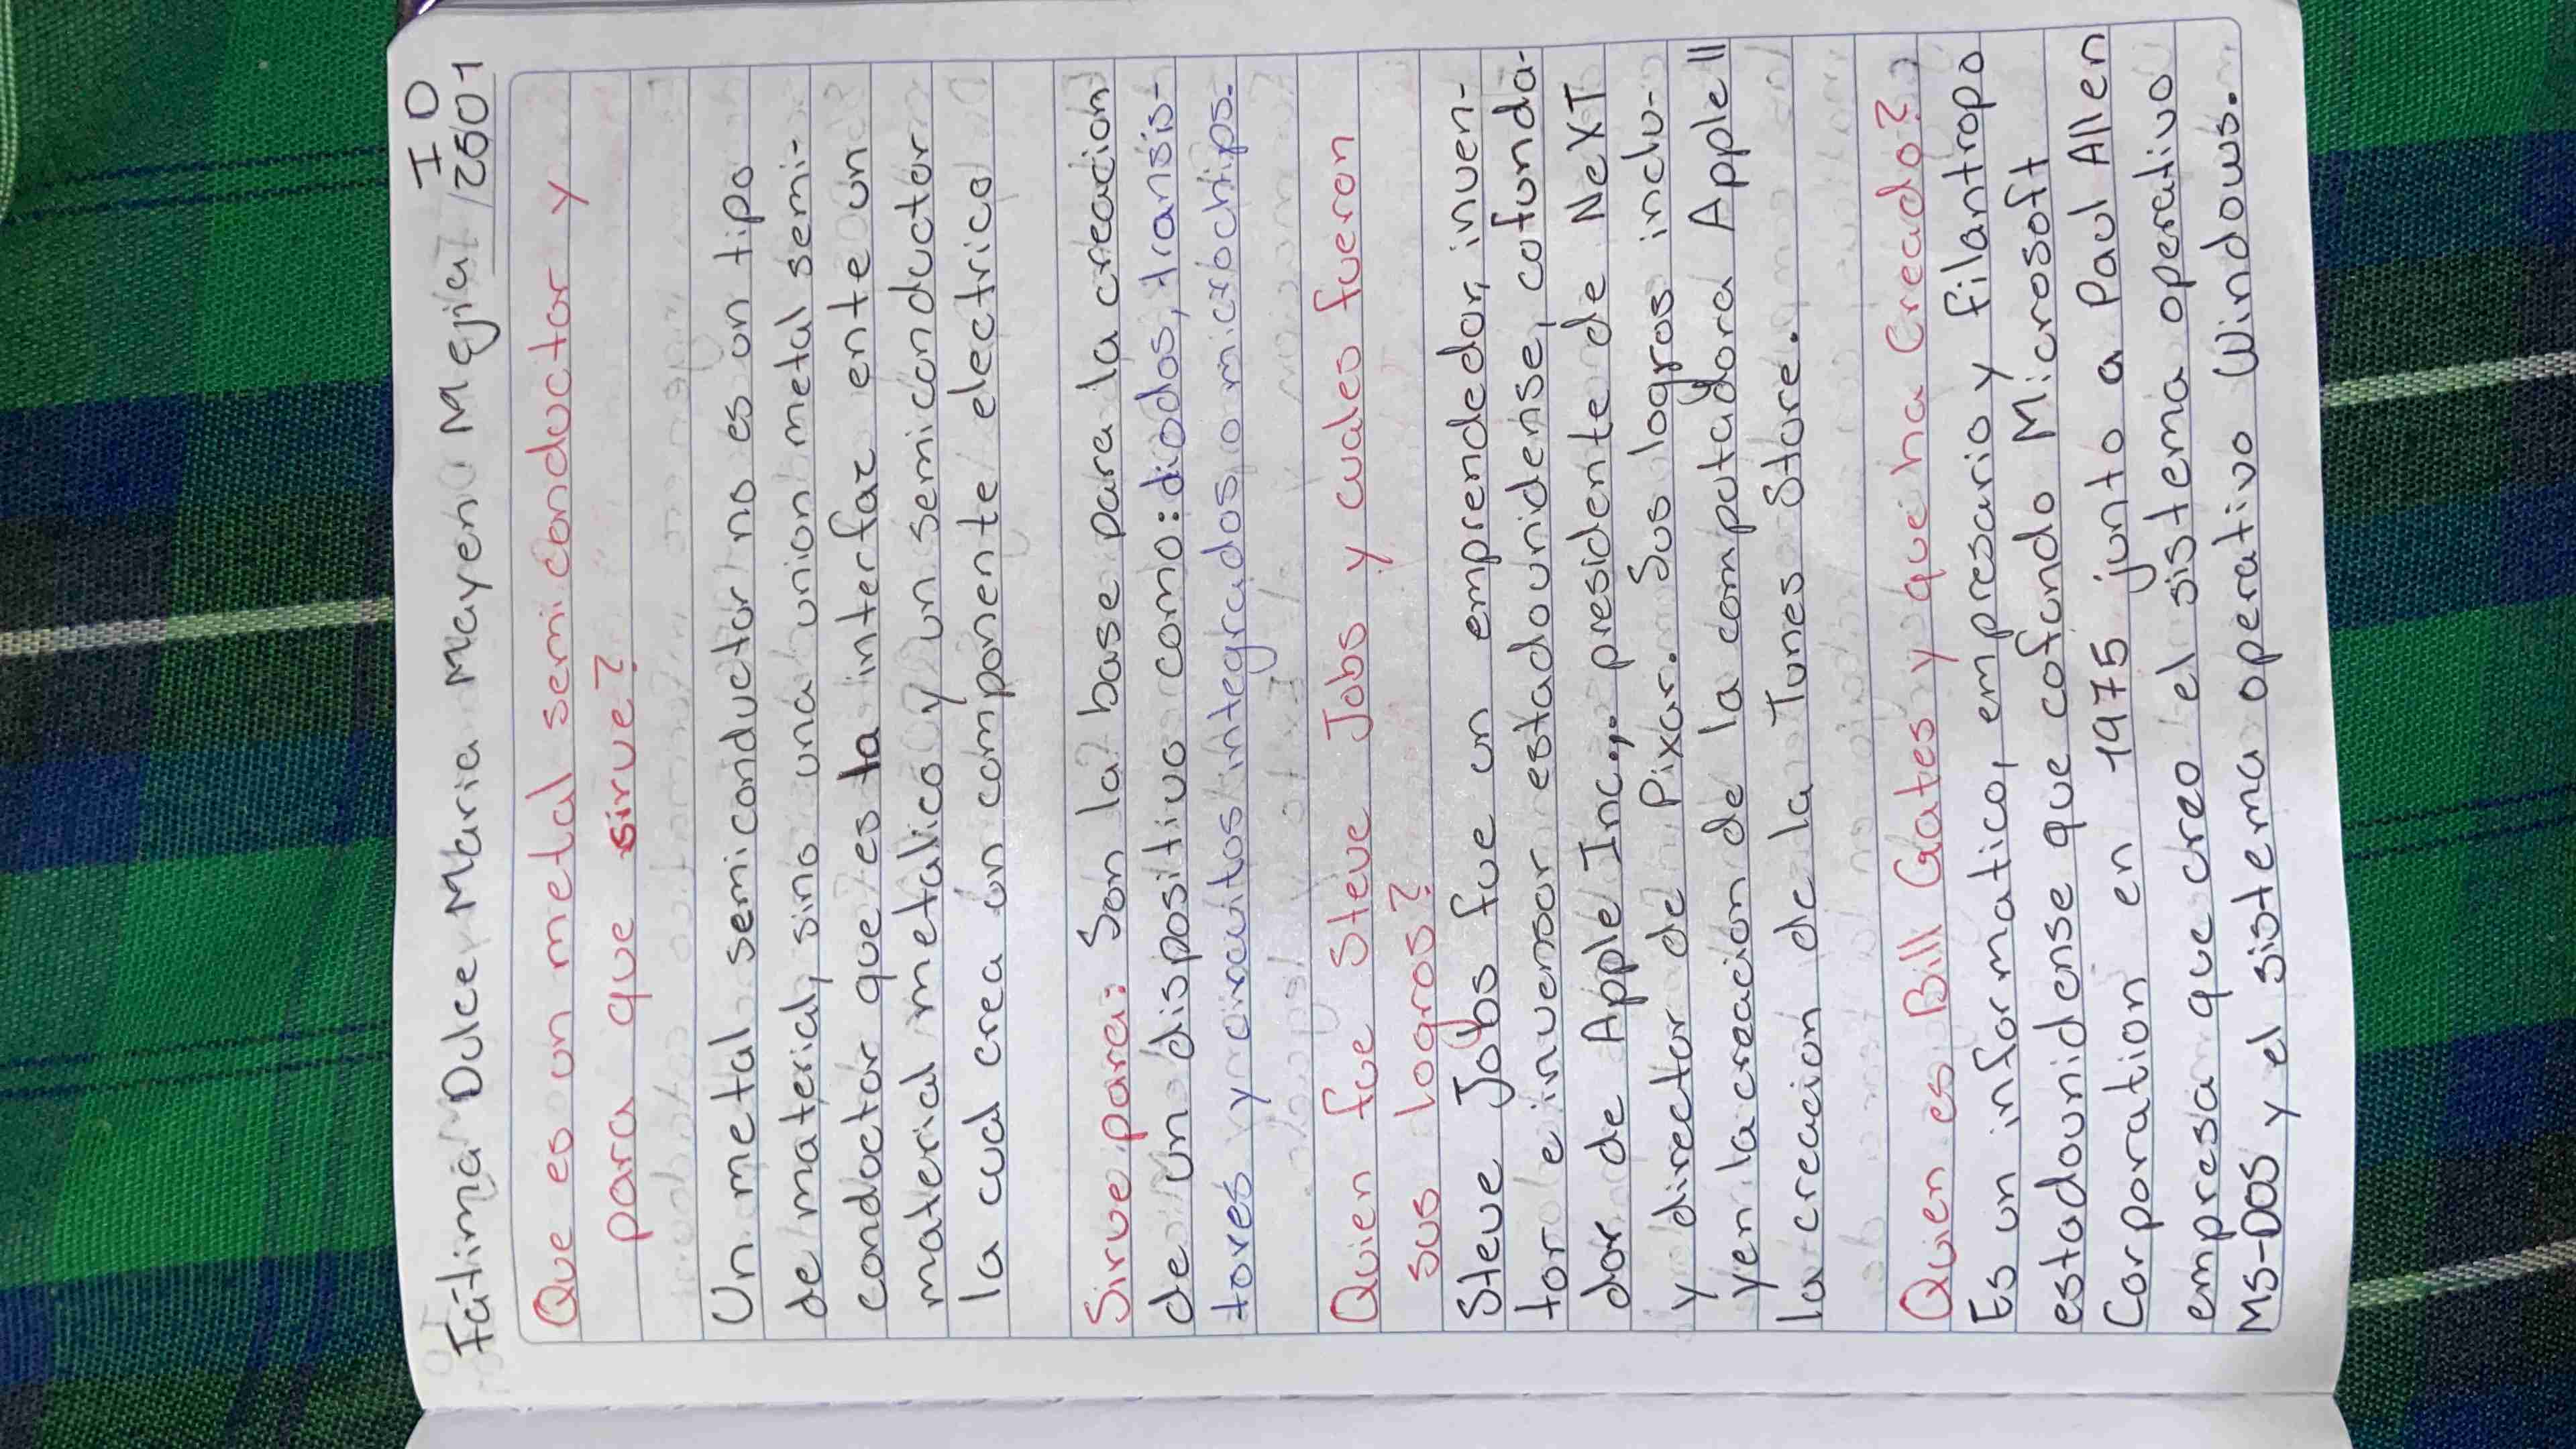 I D
Fátima Dulce Maria Mayen Mejia / 2501
Que es un metal semiconductor y
para que sirve?
Un metal semiconductor no es un tipo
de material, sino una union metal semi-
conductor que es la interfaz ente un
material metalico y un semiconductor
la cual crea un componente electrico
Sirve para: Son la base para la creacion
de un dispositivo como: diodos, transis-
tores y circuitos integrados o microchips.
Quien fue Steve Jobs y cuales fueron
sus logros?
Steve Jobs fue un emprendedor, inven-
tor e inversor estadounidense, cofunda-
dor de Apple Inc., presidente de NeXT
y director de Pixar. Sus logros inclu-
yen la creacion de la computadora Apple II
la creacion de la Tunes Store.
Quien es Bill Gates y que ha Creado?
Es un informatico, empresario y filantropo
estadounidense que cofundo Microsoft
Corporation en 1975 junto a Paul Allen
empresa que creo el sistema operativo
MS-DOS y el sistema operativo Windows.